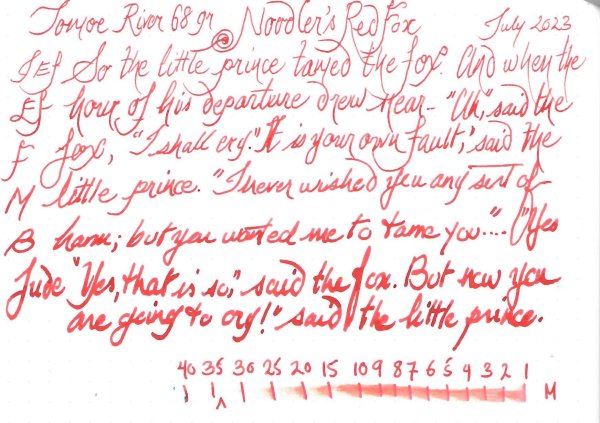 Tomoe River 68 gr @ Noodler's Red Fox July 2023
JEf So the little prince tamed the fox. And when the
Ef hour of his departure drew near— "Ah," said the
F fox, "I shall cry." It is your own fault," said the
M little prince. "I never wished you any sort of
B harm; but you wanted me to tame you...." "Yes
Jude "Yes, that is so," said the fox. But now you
are going to cry!" said the little prince.
40 35 30 25 20 15 10 9 8 7 6 5 4 3 2 1 M